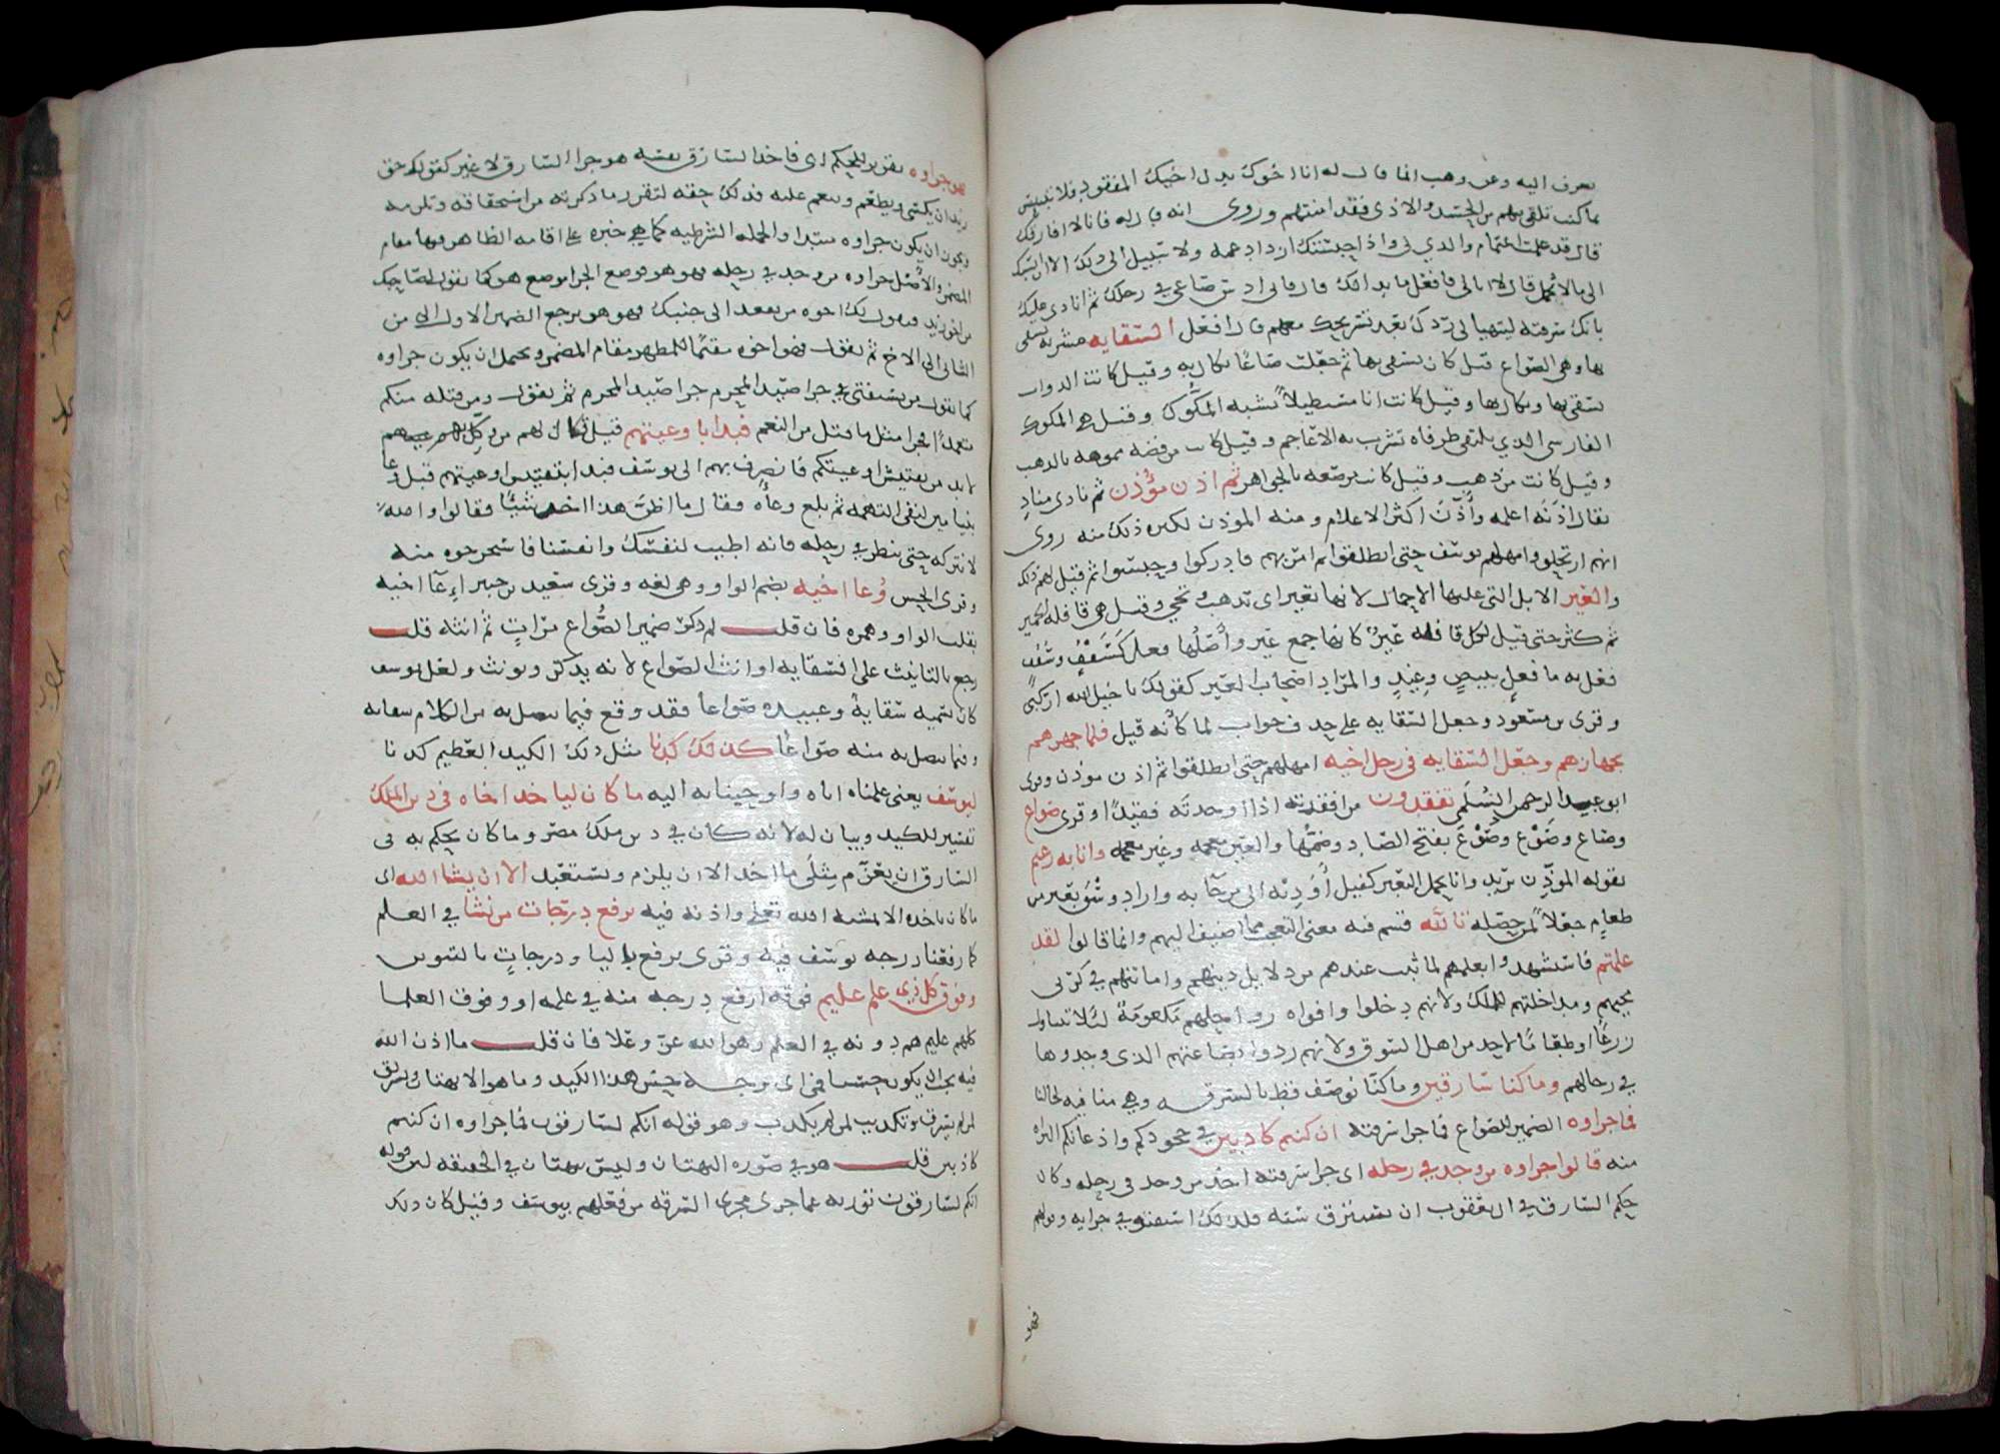 تعرف اليه وعن وهب انما قال له انا اخوك بدل اخيك المفقود فلا تبتئس
بما كنت تلقى منهم من الحسد والاذى فقد امنتهم وروى انه قال له فانا لا افارقك
قال قد علمت اغتمام والدي بي واذا حبستك ازداد غمه ولا سبيل الى ذلك الا ان انسبك
الى ما لا يجمل قال لا ابالي فافعل ما بدا لك قال فاني ادس صاعي في رحلك ثم انادي عليك
بانك سرقته ليتهيا لي ردك بعد تسريحك معهم قال افعل السقايه مشربه يسقى
بها وهي الصواع قيل كان يسقى بها ثم جعلت صاعا يكال به وقيل كانت الدواب
تسقى بها ويكال بها وقيل كانت انا مستطيلا يشبه المكوك وقيل هي المكوك
الفارسي الذي يلتقي طرفاه تشرب به الاعاجم وقيل كانت من فضه مموهه بالذهب
وقيل كانت من ذهب وقيل كانت مرصعه بالجواهر ثم اذن مؤذن ثم نادى مناد
يقال اذنه اعلمه وأذّن اكثر الاعلام ومنه الموذن لكثره ذلك منه روى
انهم ارتحلوا وامهلهم يوسف حتى انطلقوا ثم امر بهم فادركوا وحبسوا ثم قيل لهم ذلك
والعير الابل التي عليها الاحمال لانها تعير اى تذهب وتجي وقيل هي قافله الحمير
ثم كثر حتى قيل لكل قافله عير كانها جمع عير وأصلها فعل كسقف وسقف
فعل به ما فعل ببيض وعيد والمراد اصحاب العير كقولك يا خيل الله اركبى
وقرى بن مسعود وجعل السقايه على حذف جواب لما كأنه قيل فلما جهزهم
بجهازهم وجعل السقايه في رحل اخيه امهلهم حتى انطلقوا ثم اذن موذن وقرى
ابو عبد الرحمن السلمى تفقدون من افقدته اذا اوجدته فقيدا وقرى صواع
وصاع وصوع وصوع بفتح الصاد وضمها والعين معجمه وغير معجمه وانا به زعيم
يقوله الموذن يريد وانا بحمل البعير كفيل أُؤَدّيه الى من جآ به واراد وسق بعير من
طعام جعلا لمن حصله تالله قسم فيه معنى التعجب مما اضيف اليهم وانما قالوا لقد
علمتم فاستشهدوا بعلمهم لما ثبت عندهم من دلايل دينهم وامانتهم في كرتي
مجيهم ومداخلتهم للملك ولانهم دخلوا وافواه رواحلهم مكعومة لئلا تتناول
زرعا او طعاما لاحد من اهل السوق ولانهم ردوا بضاعتهم الذى وجدوها
في رحالهم وما كنا سارقين وما كنا نوصف قط بالسرقه وهي منافيه لحالنا
فما جزاوه الضمير للصواع فما جزا سرقته ان كنتم كاذبين في جحودكم وادعائكم البراه
منه قالوا جزاوه من وجد في رحله اى جزا سرقته اخذ من وجد في رحله وكان
حكم السارق في ال يعقوب ان يسترق سنه فلذلك استفتوا في جزايه وقولهم
فهو
فهو جزاوه تقرير للحكم اى فاخذ السارق نفسه هو جزا السارق لا غير كقولك حق
زيد ان يكسى ويطعم وينعم عليه فذلك حقه لتقرر ما ذكرته من استحقاقه وتلزمه
ويجوز ان يكون جزاوه مبتدا والجمله الشرطيه كما هي خبره على اقامه الظاهر فيها مقام
المضمر والأصل جزاوه من وجد في رحله فهو هو فوضع الجزا موضع هو كما تقول لصاحبك
من اخو زيد فيقول لك اخوه من يقعد الى جنبك فهو هو يرجع الضمير الاول الى من
الثاني الى الاخ ثم تقول فهو اخوه مقيما للمظهر مقام المضمر ويحتمل ان يكون جزاوه
كما يقول من يستفتى في جزا صيد المحرم جزا صيد المحرم ثم يقول ومن قتله منكم
متعمدا فجزا مثل ما قتل من النعم فبدا باوعيتهم قيل قال لهم من وكل بهم
لا بد من تفتيش اوعيتكم فانصرف بهم الى يوسف فبدا بتفتيش اوعيتهم قبل وعا
بنيامين لنفي التهمه ثم بلغ وعآه فقال ما اظن هذا اخذ شيئا فقالوا والله
لا نتركه حتى ينظر في رحله فانه اطيب لنفسك وانفسنا فاستخرجوه منه
وقرى الحسن وُعا اخيه بضم الواو وهي لغه وقرى سعيد بن جبير اِعآ اخيه
بقلب الواو وهمزه فان قلت لم ذكر ضمير الصواع مرات ثم انثه قلت
رجع بالتانيث على السقايه او انث الصواع لانه يذكر ويونث ولعل يوسف
كان يسميه سقاية وعبيده صواعا فقد وقع فيما يتصل به من الكلام سقايه
وفيما يتصل به منه صواعا كذلك كدنا مثل ذلك الكيد العظيم كدنا
ليوسف يعنى علمناه اياه واوحينا به اليه ما كان لياخذ اخاه في دين الملك
تفسير للكيد وبيان له لانه كان في دين ملك مصر وما كان يحكم به في
السارق ان يغرّم مثلَى ما اخذ لا ان يلزم ويستعبد الا ان يشا الله اى
ما كان ياخذه الا بمشيه الله تعلى واذنه فيه نرفع درجات من نشا في العلم
كما رفعنا درجه يوسف فيه وقرى يرفع باليا ودرجاتٍ بالتنوين
وفوق كل ذي علم عليم فوقه ارفع درجه منه في علمه او وفوق العلما
كلهم عليم هم دونه في العلم وهو الله عز وعلا فان قلت ما اذن الله
فيه يجب ان يكون حسنا فمن اى وجه حسن هذا الكيد وما هو الا بهتان وتسريق
لمن لم يسرق وتكذيب لمن لم يكذب وهو قوله انكم لسارقون فما جزاوه ان كنتم
كاذبين قلت هو في صوره البهتان وليس ببهتان في الحقيقه لان قوله
انكم لسارقون توريه عما جرى مجرى السرقه من فعلهم بيوسف وقيل كان ذلك